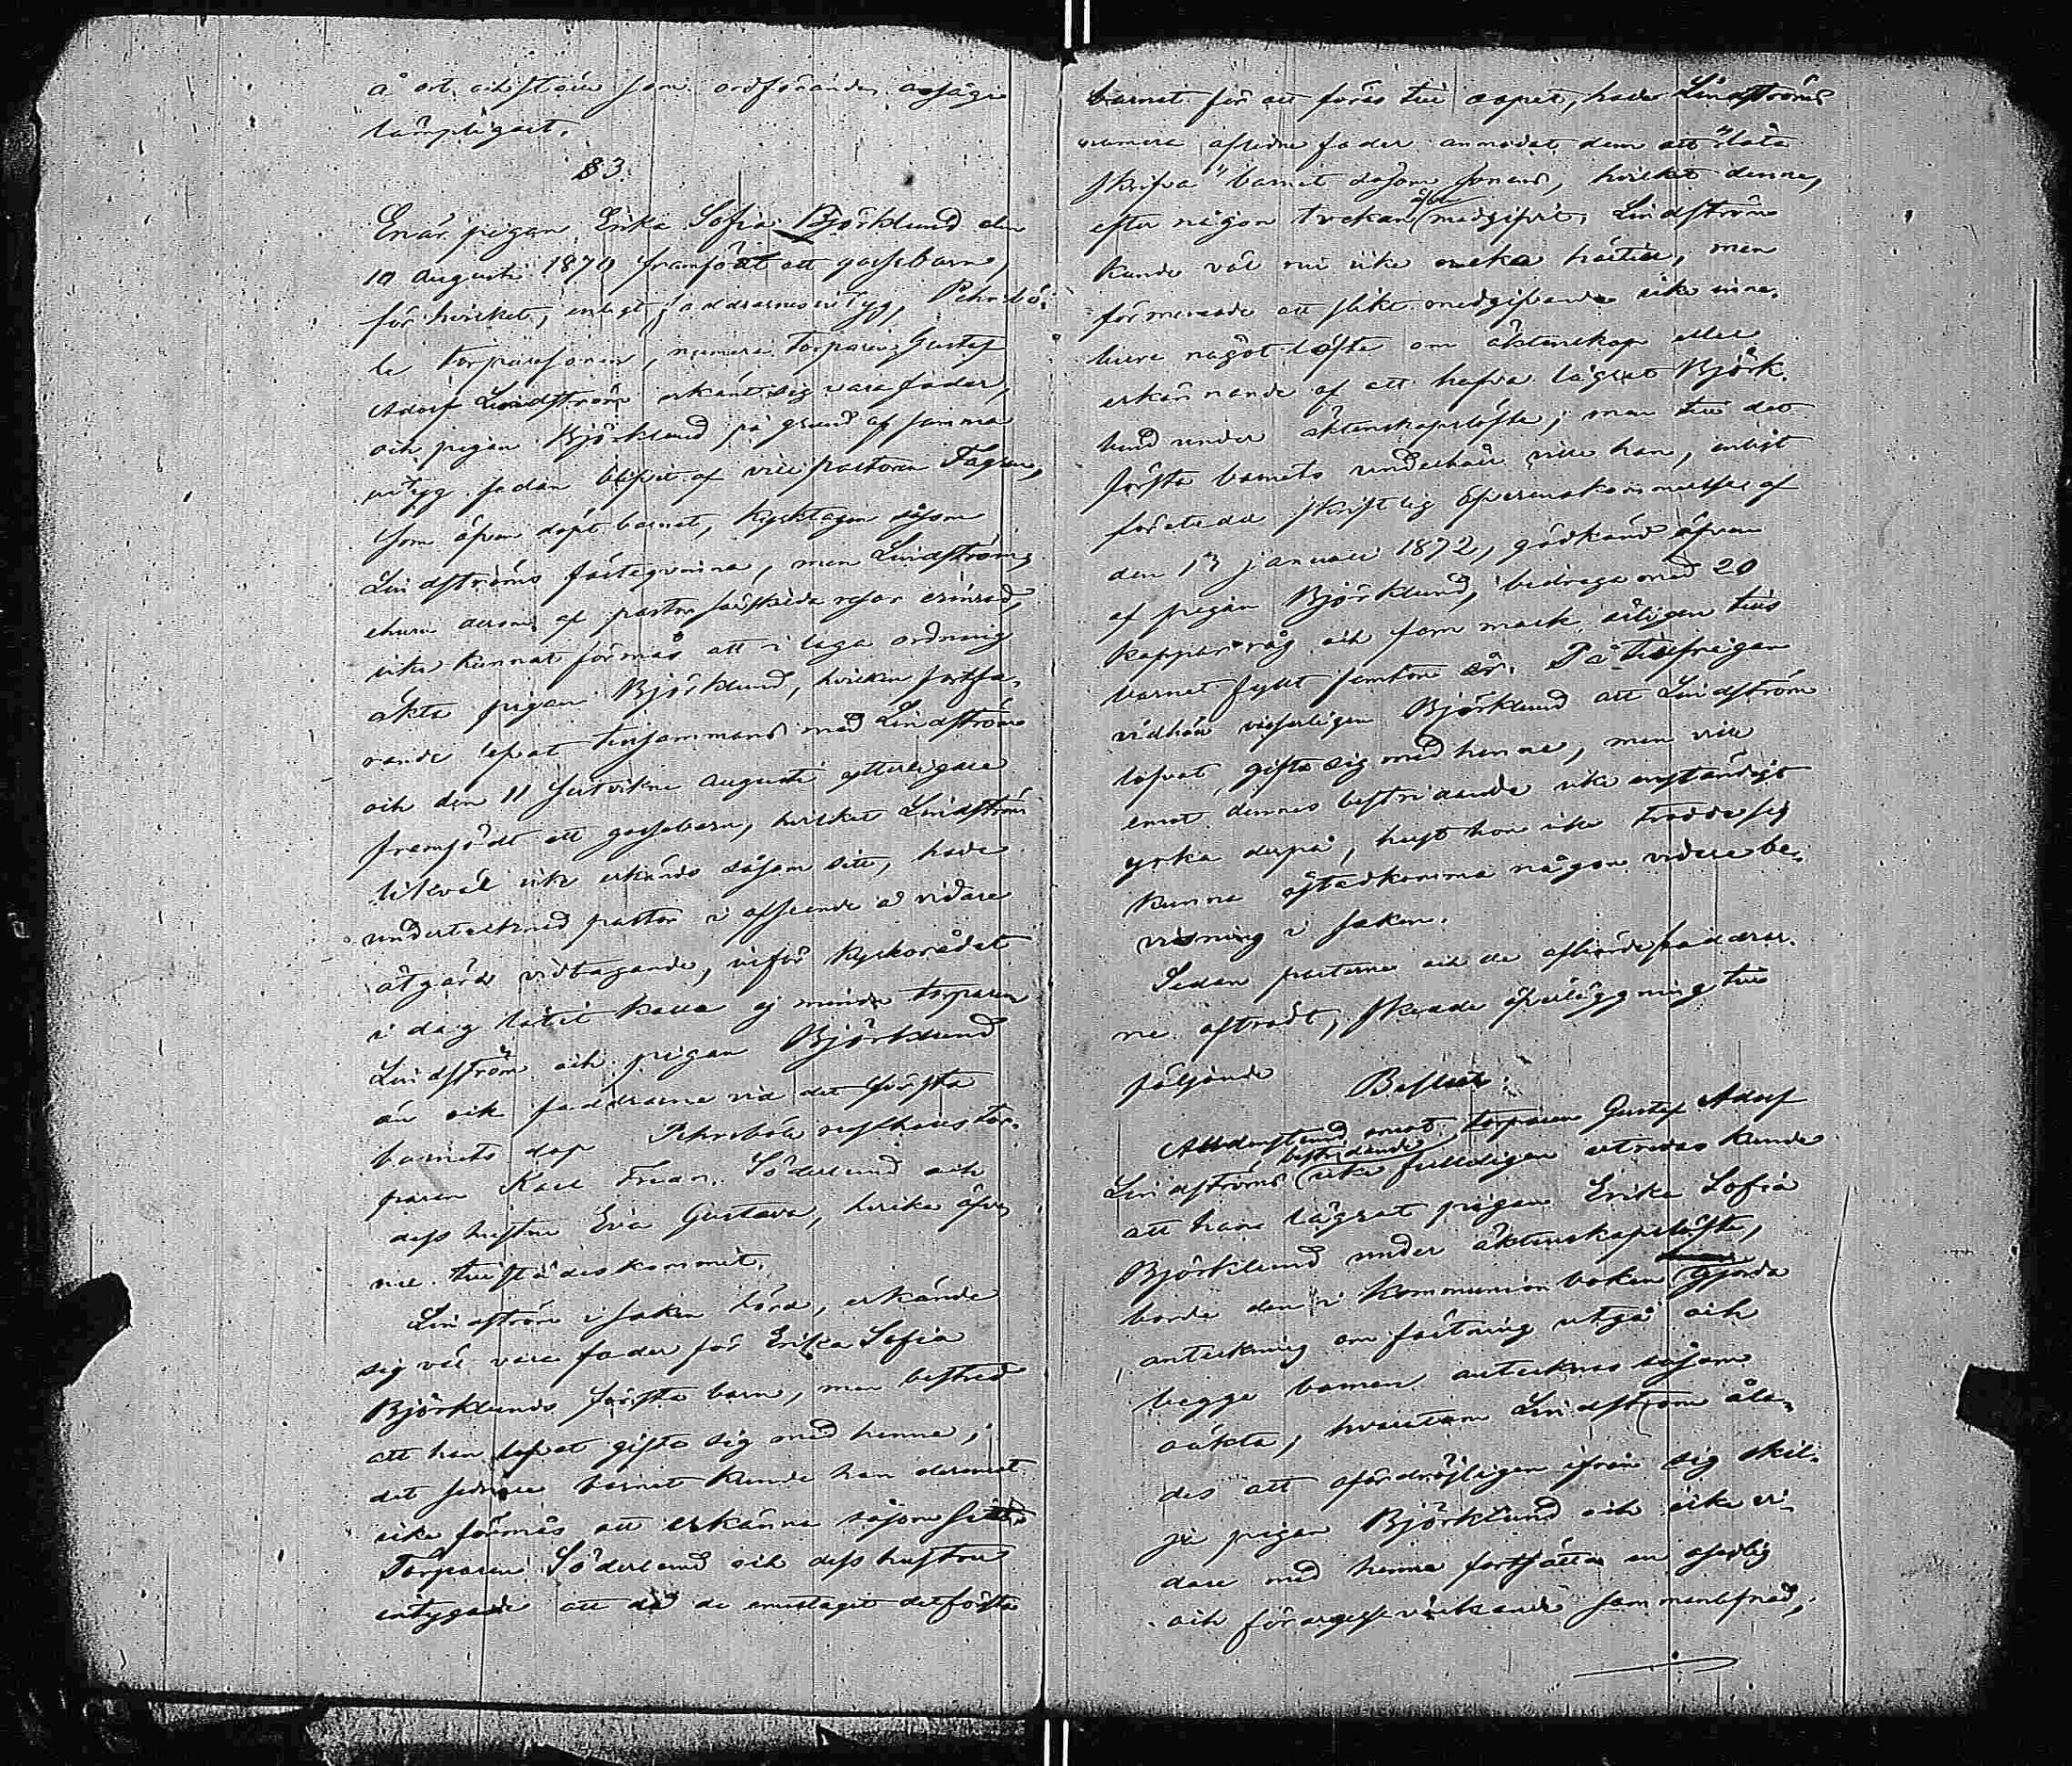 å ort och ställe som ordföranden assäge
lämpligast.
§3.
Enär pigan Erika Sofia Björklund den
10 Augusti 1870 framfödt ett gossebarn,
för hvilket, enligt faddrarnes intyg, Pehrsbö-
le torparesonen, numera torparen Gustaf
Adolf Lindström erkänt sig vara fader,
och pigan Björklund på grund af samma
intyg sedan blifvit af vice pastoren Fagren,
som äfven döpt barnet, kyrktagen såsom
Lindströms fästeqvinna, men Lindström,
ehuru derom af pastor särskilda resor erinrad,
icke kunnat förmås att i laga ordning
äkta pigan Björklund, hvilken fortfa-
rande lefvat tillsammans med Lindström
och den 11 sistvikne Augusti ytterligare
framfödt ett gossebarn, hvilket Lindström
likväl icke erkände såsom sitt, hade
undertecknad pastor i afseende å vidare
åtgärds vidtagande, inför kyrkorådet
i dag låtit kalla ej mindre torparen
Lindström och pigan Björklund
än ock faddrarne vid det första
barnets dop Pehrsböle rusthålls tor-
paren Karl Fredr. Söderlund och
dess hustru Eva Gustava, hvilka äfven
nu tillstädeskommit.
Lindström i saken hörd, erkände
sig väl vara fader för Erika Sofia
Björklunds första barn, men bestred
att han lofvat gifta sig med henne;
det sednare barnet kunde han deremot
icke förmås att erkänna såsom sitt.
Torparen Söderlund och dess hustru
intygade att då de emottagit det första
barnet för att föras till dopet, hade Lindströms
numera aflidne fader anmodat dem att "låta
skrifva" barnet såsom sonens, hvilket denne,
efter någon tvekan äfven medgifvit. Lindström
kunde väl nu icke neka härtill, men
förmenade att slikt medgifvande icke inne-
bure något löfte om äktenskap eller
erkännande af att hafva lägrat Björk-
lund under äktenskapslöfte; men till det
första barnets underhåll ville han, enligt
företedd skriftlig öfverenskommelse af
den 13 Januari 1872, godkänd äfven
af pigan Björklund, bidraga med 20
kappar råg och fem mark årligen tills
barnet fyllt femton år. På tillfrågan
vidhöll visserligen Björklund att Lindström
lofvat gifta sig med henne, men ville
emot dennes bestridande icke enständigt
yrka derpå, helst hon icke trodde sig
kunna åstadkomma någon vidare be-
visning i saken.
Sedan parterne och de afhörde faddrar-
ne afträdt, skedde öfverläggning till
följande Beslut:
Alldenstund emot torparen Gustaf Adolf
Lindströms bestridande icke fulleligen utredas kunde
att han lägrat pigan Erika Sofia
Björklund under äktenskapslöfte,
borde den i kommunionboken gjorda
anteckning om fästning utgå och
begge barnen antecknas såsom
oäkta; hvarutom Lindström åla-
des att ofördröjligen ifrån sig skil-
ja pigan Björklund och icke vi-
dare med henne fortsätta en osedlig
och förargelseväckande sammanlefnad,